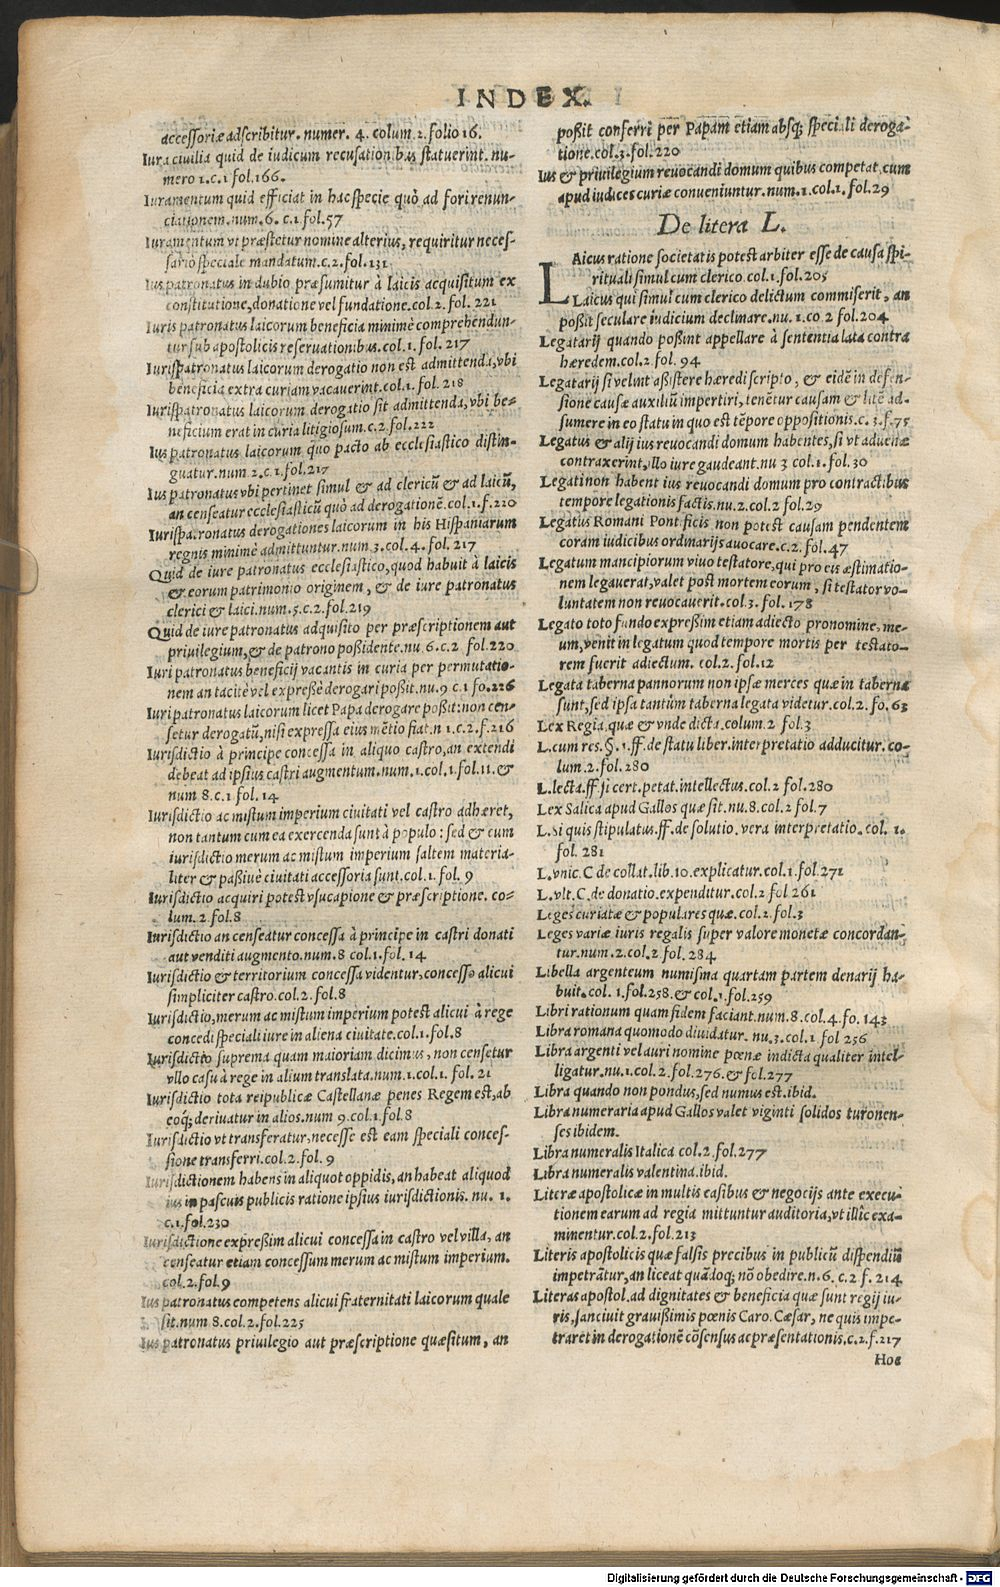 INDEX.
accessoriæ adscribitur. numer. 4. colum 2. folio 16.
Iura ciuilia quid de iudicum recusationibus statuerint. nu-
mero 1. c. 1 fol. 166.
Iuramentum quid efficiat in hac specie quò ad fori renun-
ciationem. num. 6. c. 1. fol. 57
Iuramentum vt præstetur nomine alterius, requiritur neces-
sario speciale mandatum. c. 2. fol. 131
Ius patronatus in dubio præsumitur à laicis acquisitum ex
constitutione, donatione vel fundatione. col. 2. fol. 221
Iuris patronatus laicorum beneficia minimè comprehendun-
tur sub apostolicis reseruationibus. col. 1. fol. 217
Iurispatronatus laicorum derogatio non est admittenda, vbi
beneficia extra curiam vacauerint. col. 1. fol. 218
Iurispatronatus laicorum derogatio sit admittenda, vbi be-
neficium erat in curia litigiosum. c. 2. fol. 222
Ius patronatus laicorum quo pacto ab ecclesiastico distin-
guatur. num. 2. c. 1. fol. 217
Ius patronatus vbi pertinet simul & ad clericū & ad laicū,
an censeatur ecclesiasticū quò ad derogationē. col. 1. f. 220
Iurispatronatus derogationes laicorum in his Hispaniarum
regnis minimè admittuntur. num. 3. col. 4. fol. 217
Quid de iure patronatus ecclesiastico, quod habuit à laicis
& eorum patrimonio originem, & de iure patronatus
clerici & laici. num. 5. c. 2. fol. 219
Quid de iure patronatus adquisito per præscriptionem aut
priuilegium, & de patrono possidente. nu. 6. c. 2 fol. 220
Iuri patronatus beneficij vacantis in curia per permutatio-
nem an tacitè vel expressè derogari possit. nu. 9 c. 1 fo. 226
Iuri patronatus laicorum licet Papa derogare possit: non cen-
setur derogatū, nisi expressa eius mētio fiat. n 1. c. 2. f. 216
Iurisdictio à principe concessa in aliquo castro, an extendi
debeat ad ipsius castri augmentum. num. 1. col. 1. fol. 11. &
num 8. c. 1 fol. 14
Iurisdictio ac mistum imperium ciuitati vel castro adhæret,
non tantum cum ea exercenda sunt à populo: sed & cum
iurisdictio merum ac mistum imperium saltem materia-
liter & passiuè ciuitati accessoria sunt. col. 1. fol. 9
Iurisdictio acquiri potest vsucapione & præscriptione. co-
lum. 2. fol. 8
Iurisdictio an censeatur concessa à principe in castri donati
aut venditi augmento. num. 8 col. 1. fol. 14
Iurisdictio & territorium concessa videntur, concesso alicui
simpliciter castro. col. 2. fol. 8
Iurisdictio, merum ac mistum imperium potest alicui à rege
concedi speciali iure in aliena ciuitate. col. 1. fol. 8
Iurisdictio suprema quam maioriam dicimus, non censetur
vllo casu à rege in alium translata. num. 1. col. 1. fol. 21
Iurisdictio tota reipublicæ Castellanæ penes Regem est, ab
eoq́; deriuatur in alios. num 9. col. 1. fol. 8
Iurisdictio vt transferatur, necesse est eam speciali conces-
sione transferri. col. 2. fol. 9
Iurisdictionem habens in aliquot oppidis, an habeat aliquod
ius in pascuis publicis ratione ipsius iurisdictionis. nu. 1.
c. 1. fol. 230
Iurisdictione expressim alicui concessa in castro vel villa, an
censeatur etiam concessum merum ac mistum imperium.
col. 2. fol. 9
Ius patronatus competens alicui fraternitati laicorum quale
sit. num 8. col. 2. fol. 225
Ius patronatus priuilegio aut præscriptione quæsitum, an
possit conferri per Papam etiam absq; speciali deroga-
tione. col. 3. fol. 220
Ius & priuilegium reuocandi domum quibus competat, cum
apud iudices curiæ conueniuntur. num. 1. col. 1. fol. 29
De litera L.
LAicus ratione societatis potest arbiter esse de causa spi-
rituali simul cum clerico. col. 1. fol. 205
Laicus qui simul cum clerico delictum commiserit, an
possit seculare iudicium declinare. nu. 1. co. 2 fol. 204
Legatarij quando possint appellare à sententia lata contra
hæredem. col. 2 fol. 94
Legatarij si velint assistere hæredi scripto, & eidē in defen-
sione causæ auxiliū impertiri, tenētur causam & litē ad-
sumere in eo statu in quo est tēpore oppositionis. c. 3. f. 75
Legatus & alij ius reuocandi domum habentes, si vt aduenæ
contraxerint, illo iure gaudeant. nu 3 col. 1. fol. 30
Legati non habent ius reuocandi domum pro contractibus
tempore legationis factis. nu. 2. col. 2 fol. 29
Legatus Romani Pontificis non potest causam pendentem
coram iudicibus ordinarijs auocare. c. 2. fol. 47
Legatum mancipiorum viuo testatore, qui pro eis æstimatio-
nem legauerat, valet post mortem eorum, si testator vo-
luntatem non reuocauerit. col. 3. fol. 178
Legato toto fundo expressim etiam adiecto pronomine, me-
um, venit in legatum quod tempore mortis per testato-
rem fuerit adiectum. col. 2. fol. 12
Legata taberna pannorum non ipsæ merces quæ in taberna
sunt, sed ipsa tantùm taberna legata videtur. col. 2. fo. 63
Lex Regia, quæ & vnde dicta. colum. 2 fol. 3
L. cum res. §. 1. ff. de statu liber. interpretatio adducitur. co-
lum. 2. fol. 280
L. lecta. ff. si cert. petat. intellectus. col. 2 fol. 280
Lex Salica apud Gallos quæ sit. nu. 8. col. 2 fol. 7
L. Si quis stipulatus. ff. de solutio. vera interpretatio. col. 1.
fol. 281
L. vnic. C de collat. lib. 10. explicatur. col. 1. fol. 271
L. vlt. C. de donatio. expenditur. col. 2 fol 261
Leges curiatæ & populares quæ. col. 2. fol. 3
Leges variæ iuris regalis super valore monetæ concordan-
tur. num. 2. col. 2 fol. 284
Libella argenteum numisma quartam partem denarij ha-
buit. col. 1. fol. 258. & col. 1. fol. 259
Libri rationum quam fidem faciant. num. 8. col. 4. fo. 143
Libra romana quomodo diuidatur. nu. 3. col. 1 fol 256
Libra argenti vel auri nomine pœnæ indicta qualiter intel-
ligatur. nu. 1. col. 2. fol. 276. & fol. 277
Libra quando non pondus, sed numus est. ibid.
Libra numeraria apud Gallos valet viginti solidos turonen-
ses ibidem.
Libra numeralis Italica col. 2. fol. 277
Libra numeralis valentina. ibid.
Literæ apostolicæ in multis casibus & negocijs ante execu-
tionem earum ad regia mittuntur auditoria, vt illîc exa-
minentur. col. 2. fol. 213
Literis apostolicis quæ falsis precibus in publicū dispendiū
impetrātur, an liceat quādoq; nō obedire. n. 6. c. 2 f. 214
Literas apostol. ad dignitates & beneficia quæ sunt regij iu-
ris, sanciuit grauissimis pœnis Caro. Cæsar, ne quis impe-
traret in derogationē cōsensus ac præsentationis. c. 2. f. 217
Hoc
Digitalisierung gefördert durch die Deutsche Forschungsgemeinschaft - DFG